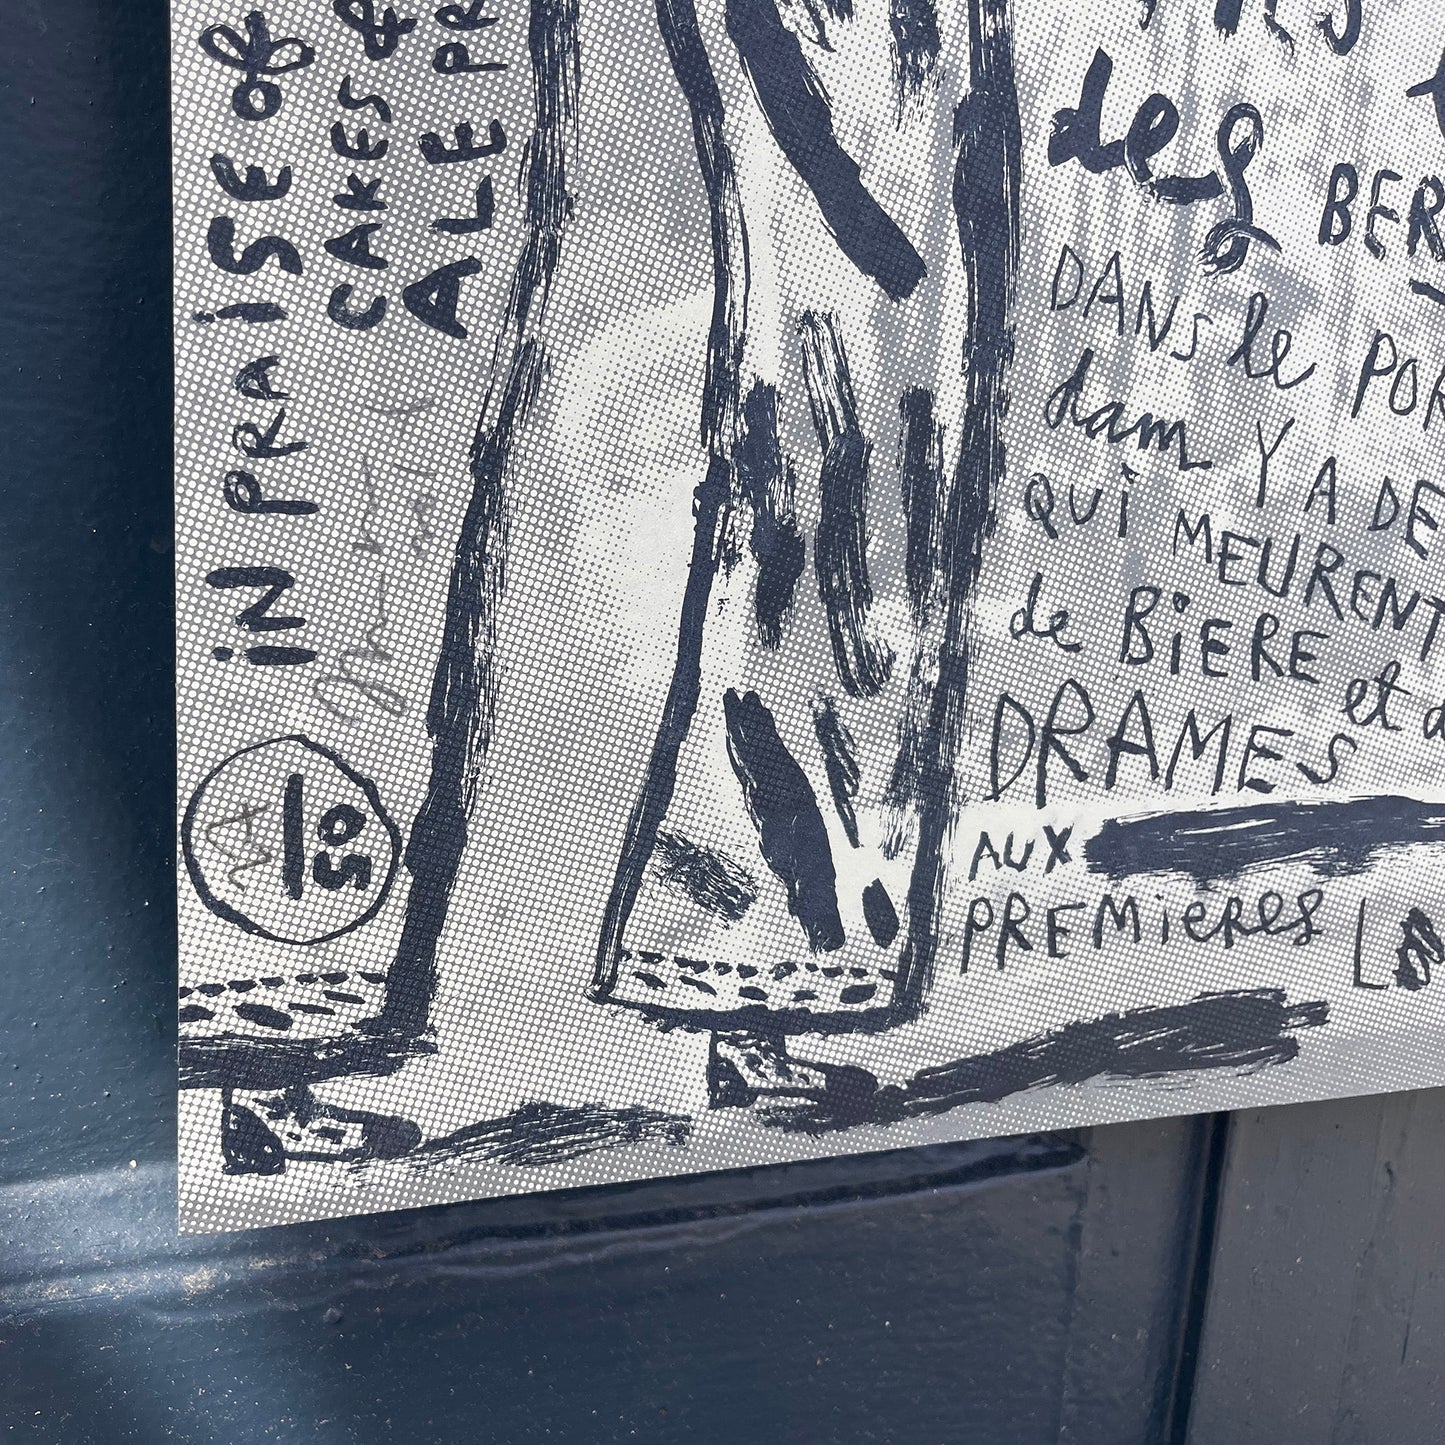 IN PRAISE of
CAKES &
ALE PR
50
des
BER
DANS le POR
dam Y A DE
QUI MEURENT
de BIERE et d
DRAMES
AUX
PREMIERES L